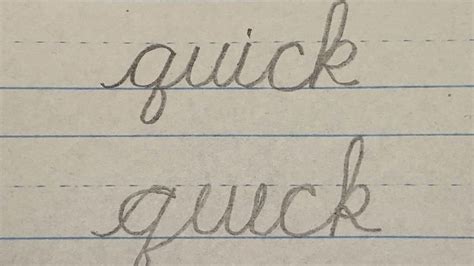 quick
quick